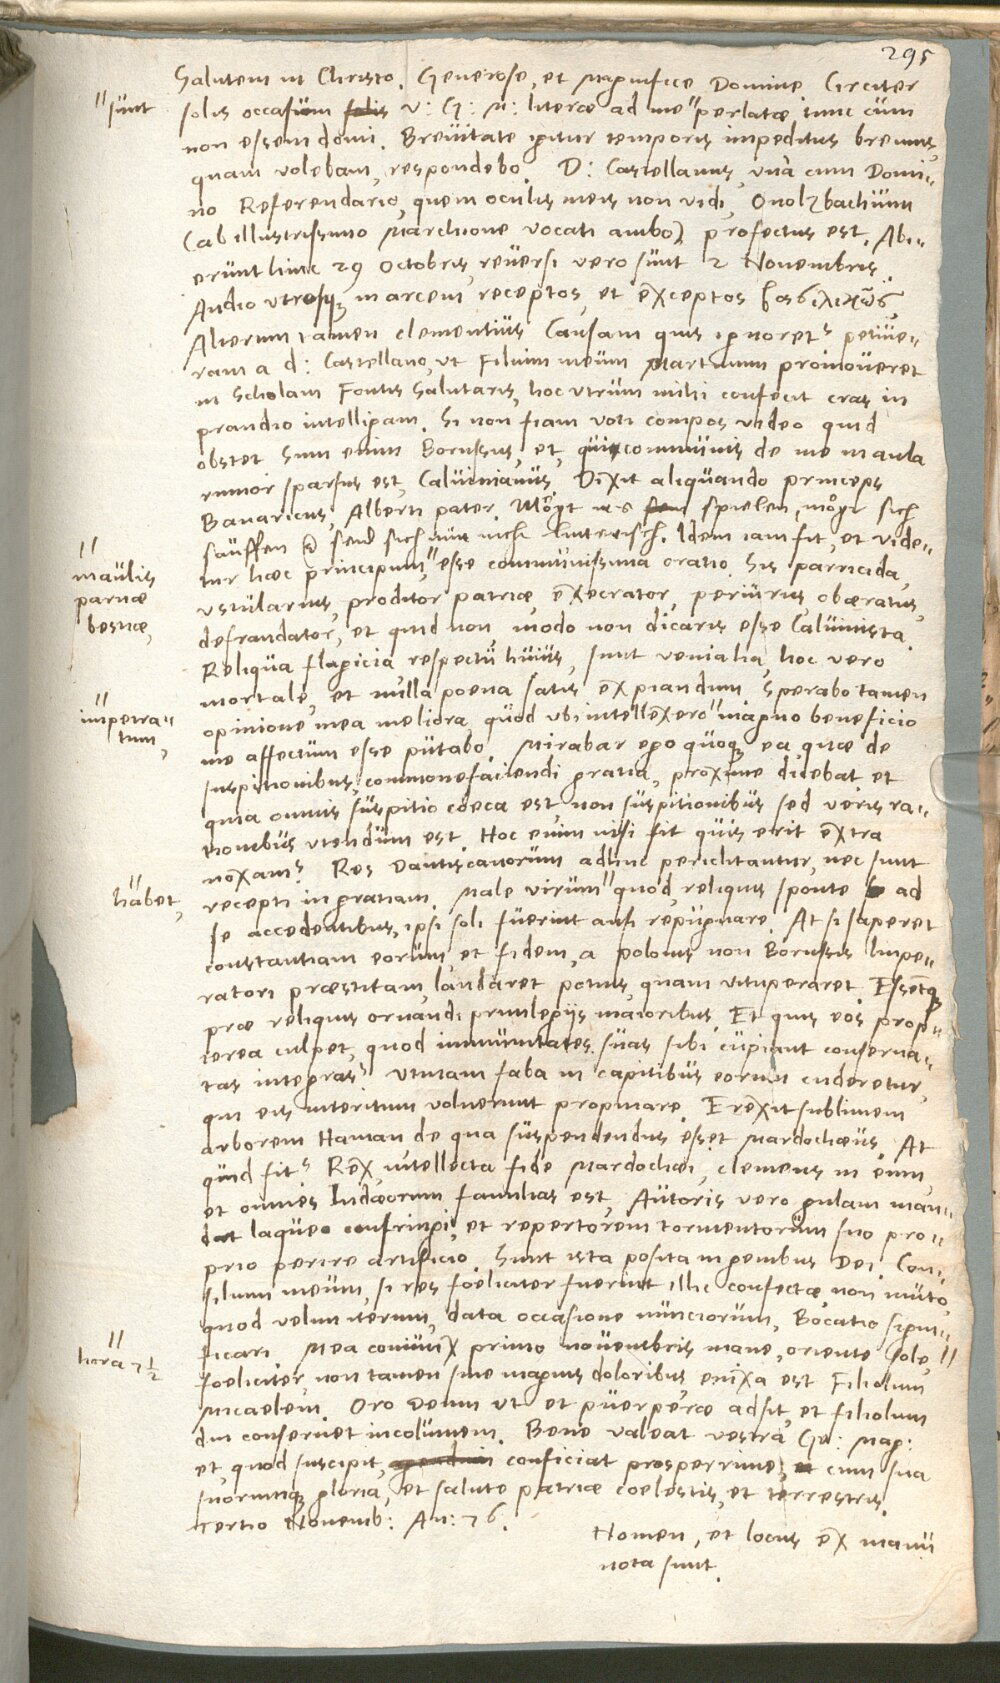 295
Salutem in Christo. Generose, et Magnifice Domine. Circiter
"sunt
solis occasum solis V: G: M: literæ ad me "perlatæ, tunc cum
non essem domi. Brevitate igitur temporis impeditus brevius,
quam volebam, respondebo. D: Castellanus, una cum Domi-
no Referendario, quem oculis meis non vidi, Onolzbachium
(ab illustrissimo Marchione vocati ambo) profectus est. Abi-
erunt hinc 29 Octobris, reversi vero sunt 2 Novembris.
Audio utrosque in arcem receptos, et exceptos βασιλικῶς,
Alterum tamen clementius. Causam quis ignoret? petive-
ram a d: Castellano, ut Filium meum Martinum promoveret
in Scholam Fontis Salutaris, hoc utrum mihi confecit cras in
prandio intelligam. Si non fiam voti compos video quid
obstet. Sum enim Borussus, et, qui communis de me in aula
rumor sparsus est, Calvinianus. Dixit aliquando princeps
Bavaricus, Alberti pater. Mögt irs spielen, mögt sich
sauffen seid sich nur nich lutterisch. Idem iam fit, et vide-
"
maulis
parvæ
bestiæ,
tur hæc principum "esse communissima oratio. Sis parricida,
ustularius, proditor patriæ, execrator, periurus, obæratus,
defraudator, et quid non, modo non dicaris esse Calvinista.
Reliqua flagicia respectu huius, sunt venialia, hoc vero
mortale, et nulla poena satis expiandum. Sperabo tamen
"
impetra-
tum,
opinione mea meliora, quod ubi intellexero "magno beneficio
me affectum esse putabo. Mirabar ego quoque ea, quæ de
suspitionibus, commonefaciendi gratia, proxime dicebat, et
quia omnis suspitio coeca est, non suspitionibus sed veris ra-
tionibus utendum est. Hoc enim nisi fit quis erit extra
noxam? Res Dantiscanorum adhuc periclitantur, nec sunt
"
habet,
recepti in gratiam. Male virum "quod, reliquis sponte ad
se accedentibus, ipsi soli fuerint ausi repugnare. At si saperet
constantiam eorum, et fidem, a polonis non Borussis Impe-
ratori præstitam, laudaret potius, quam vituperaret. Essetque
præ reliquis ornandi privilegijs maioribus. Et quis eos prop-
terea culpet, quod immunitates suas sibi cupiant conserva-
tas integras? Utinam faba in capitibus eorum cuderetur,
qui eis interitum voluerunt propinare. Erexit sublimem
arborem Haman de qua suspendendus esset Mardochæus. At
quid fit? Rex, intellecta fide Mardochæi, clemens in eum,
et omnes Iudæorum familias est, Autoris vero gulam man-
dat laqueo confringi, et repertorem tormentorum suo pro-
prio perire artificio. Sunt ista posita in genibus Dei. Con-
silium meum, si res foeliciter fuerint illic confectæ, non muto,
quod velim iterum, data occasione nunciorum, Bocatio signi-
"
hora 7 1/2
ficari. Mea coniunx primo novembris mane, oriente sole, "
foeliciter, non tamen sine magnis doloribus, enixa est Filiolum
Micaelem. Oro Deum ut et puerperæ adsit, et filiolum
diu conservet incolumem. Bene valeat vestra Ge: Mag:
et, quod suscipit, conficiat prosperrime, cum sua
suorumque gloria, et salute patriæ coelestis, et terrestris.
tertio Novemb: An: 76.
Nomen, et locus ex manu
nota sunt.